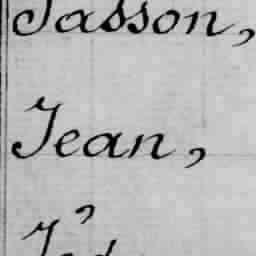 Jasson,
Jean,